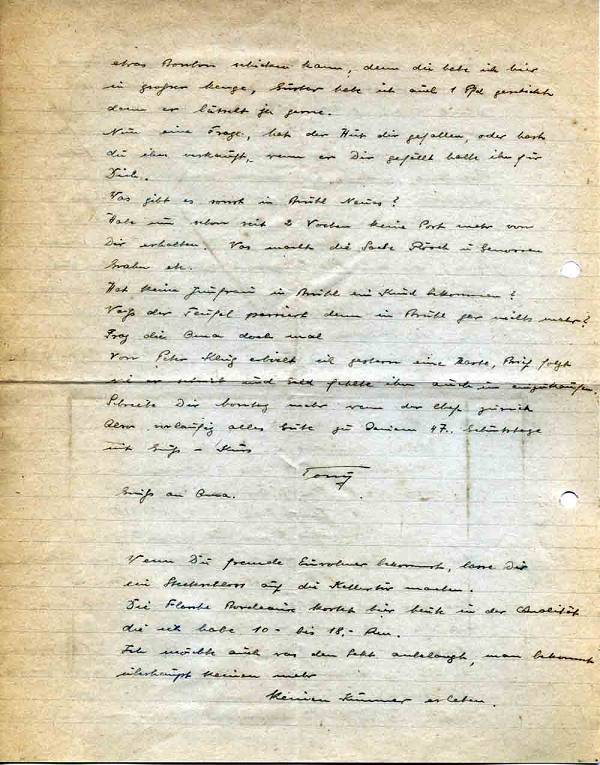 etwas Bonbon schicken kann, denn die habe ich hier
in großer Menge, habe ich auch 1 Pfd geschickt
denn er ja gerne.
Nun eine Frage, hat der Hut dir gefallen, oder hast
du ihn verkauft, wenn er Dir gefällt halte ihn für
Dich.
Was gibt es sonst in Brühl Neues?
Habe nun schon seit 2 Wochen keine Post mehr von
Dir erhalten. Was macht die Sache u Genossen
etc.
Hat keine Jungfrau in Brühl ein Kind bekommen?
Weiß der Teufel passiert denn in Brühl gar nichts mehr?
Frag die Oma doch mal
Von Peter erhielt ich gestern eine Karte, Brief folgt
wie er schrieb und Geld fehlte ihm auch um einzukaufen.
Schreibe Dir mehr wenn der Chef zurück
Also vorläufig alles Gute zu Deinem 47. Geburtstage
mit Gruß + Kuss
Tony
Gruß an Oma.
Wenn Du fremde Einwohner bekommst, lasse Dir
ein Steckschloss auf die Kellertür machen.
Die Flasche Bordeaux kostet hier heute in der Qualität
die ich habe 10 - bis 18,- Rm.
Ich möchte auch was den Sekt anbelangt, man bekommt
überhaupt keinen mehr
keinen Kummer erleben.